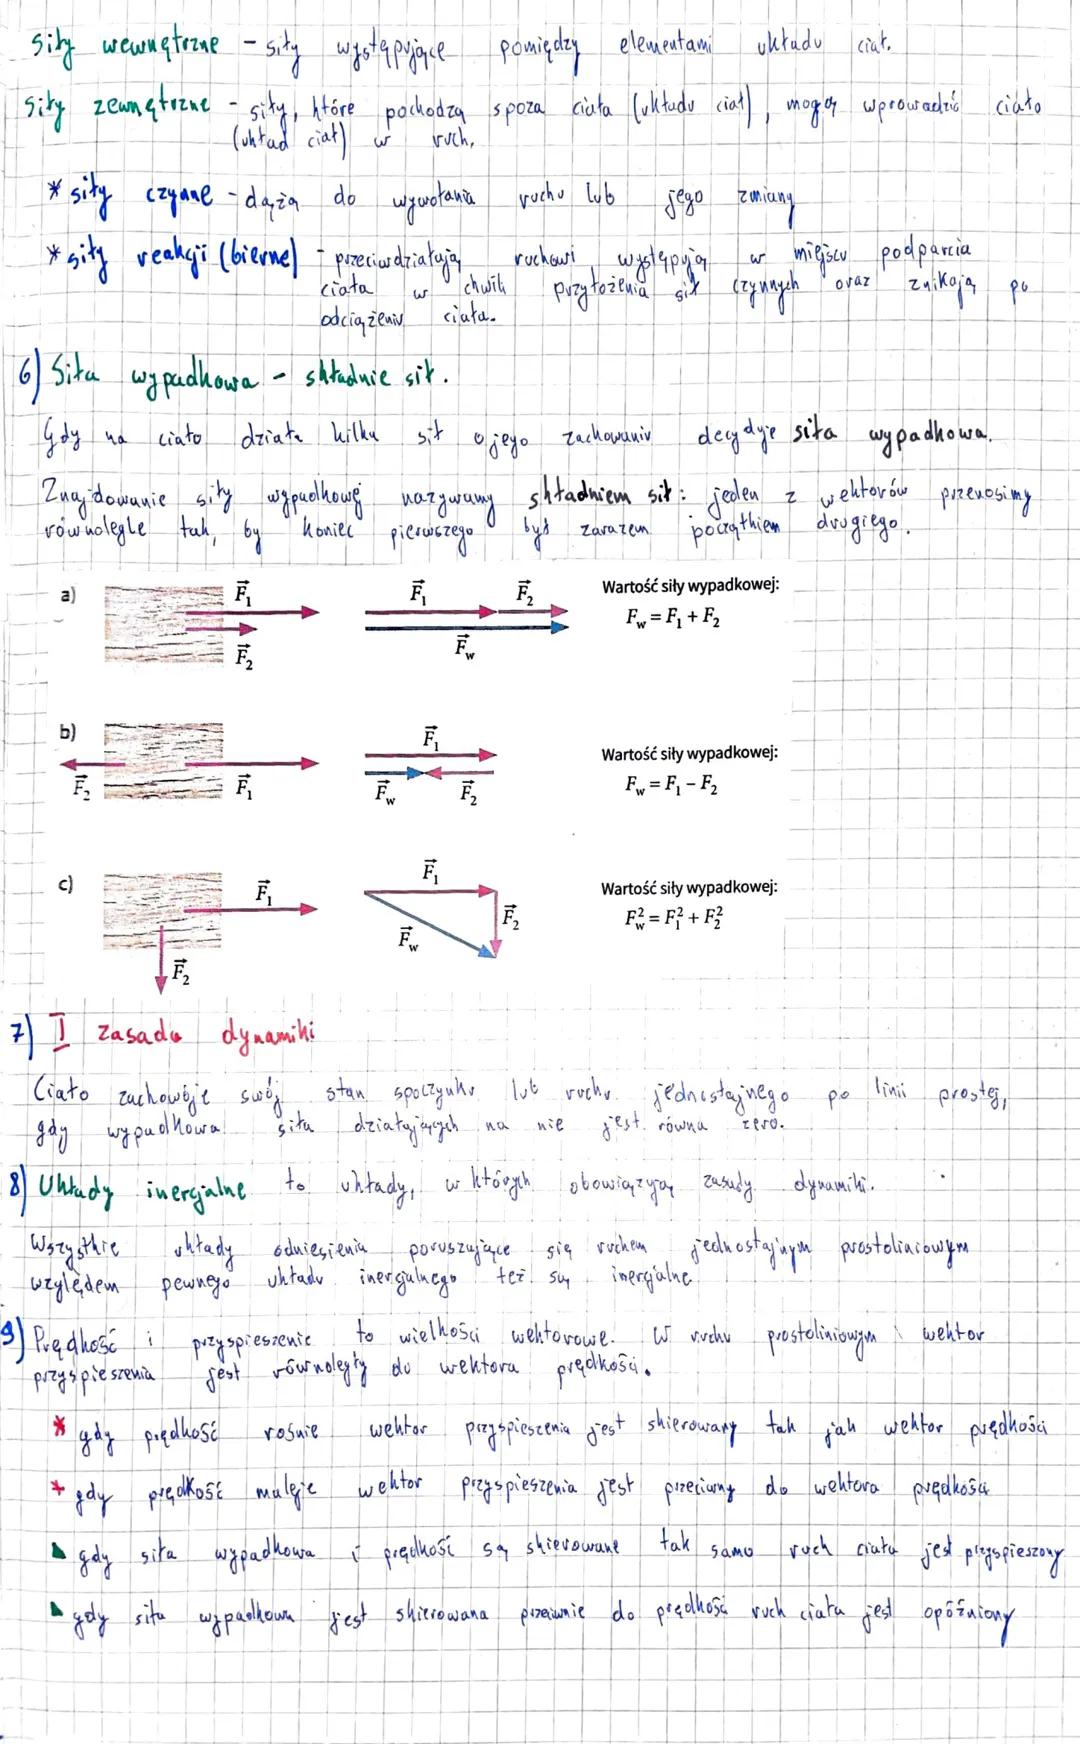 Siły wewnętrzne - siły występujące pomiędzy elementami układu ciał.
Siły zewnętrzne - siły, które pochodzą spoza ciała (układu ciał), mogą wprowadzić ciało
(układ ciał) w ruch.
* siły czynne - dążą do wywołania ruchu lub jego zmiany
* siły reakcji (bierne) - przeciwdziałają ruchowi, występują w miejscu podparcia
ciała w chwili przyłożenia sił czynnych oraz znikają po
odciążeniu ciała.
6) Siła wypadkowa - składnie sił.
Gdy na ciało działa kilka sił o jego zachowaniu decydyje siła wypadkowa.
Znajdowanie siły wypadkowej nazywamy składniem sił: jeden z wektorów przenosimy
równolegle tak, by koniec pierwszego był zarazem początkiem drugiego.
a) F₁ F₁ F₂ Wartość siły wypadkowej:
F_w = F₁ + F₂
F₂ F_w
b) F₁ Wartość siły wypadkowej:
F₂ F₁ F_w F₂ F_w = F₁ – F₂
c) F₁ F₁ Wartość siły wypadkowej:
F_w F₂ F_w² = F₁² + F₂²
F₂
7) I zasada dynamiki
Ciało zachowuje swój stan spoczynku lub ruchu jednostajnego po linii prostej,
gdy wypadkowa siła działających na nie jest równa zero.
8) Układy inercjalne to układy, w których obowiązują zasady dynamiki.
Wszystkie układy odniesienia poruszające się ruchem jednostajnym prostoliniowym
względem pewnego układu inercjalnego też są inercjalne
9) Prędkość i przyspieszenie to wielkości wektorowe. W ruchu prostoliniowym wektor
przyspieszenia jest równoległy do wektora prędkości.
* gdy prędkość rośnie wektor przyspieszenia jest skierowany tak jak wektor prędkości
* gdy prędkość maleje wektor przyspieszenia jest przeciwny do wektora prędkości
gdy siła wypadkowa i prędkość są skierowane tak samo ruch ciała jest przyspieszony
gdy siła wypadkowa jest skierowana przeciwnie do prędkości ruch ciała jest opóźniony